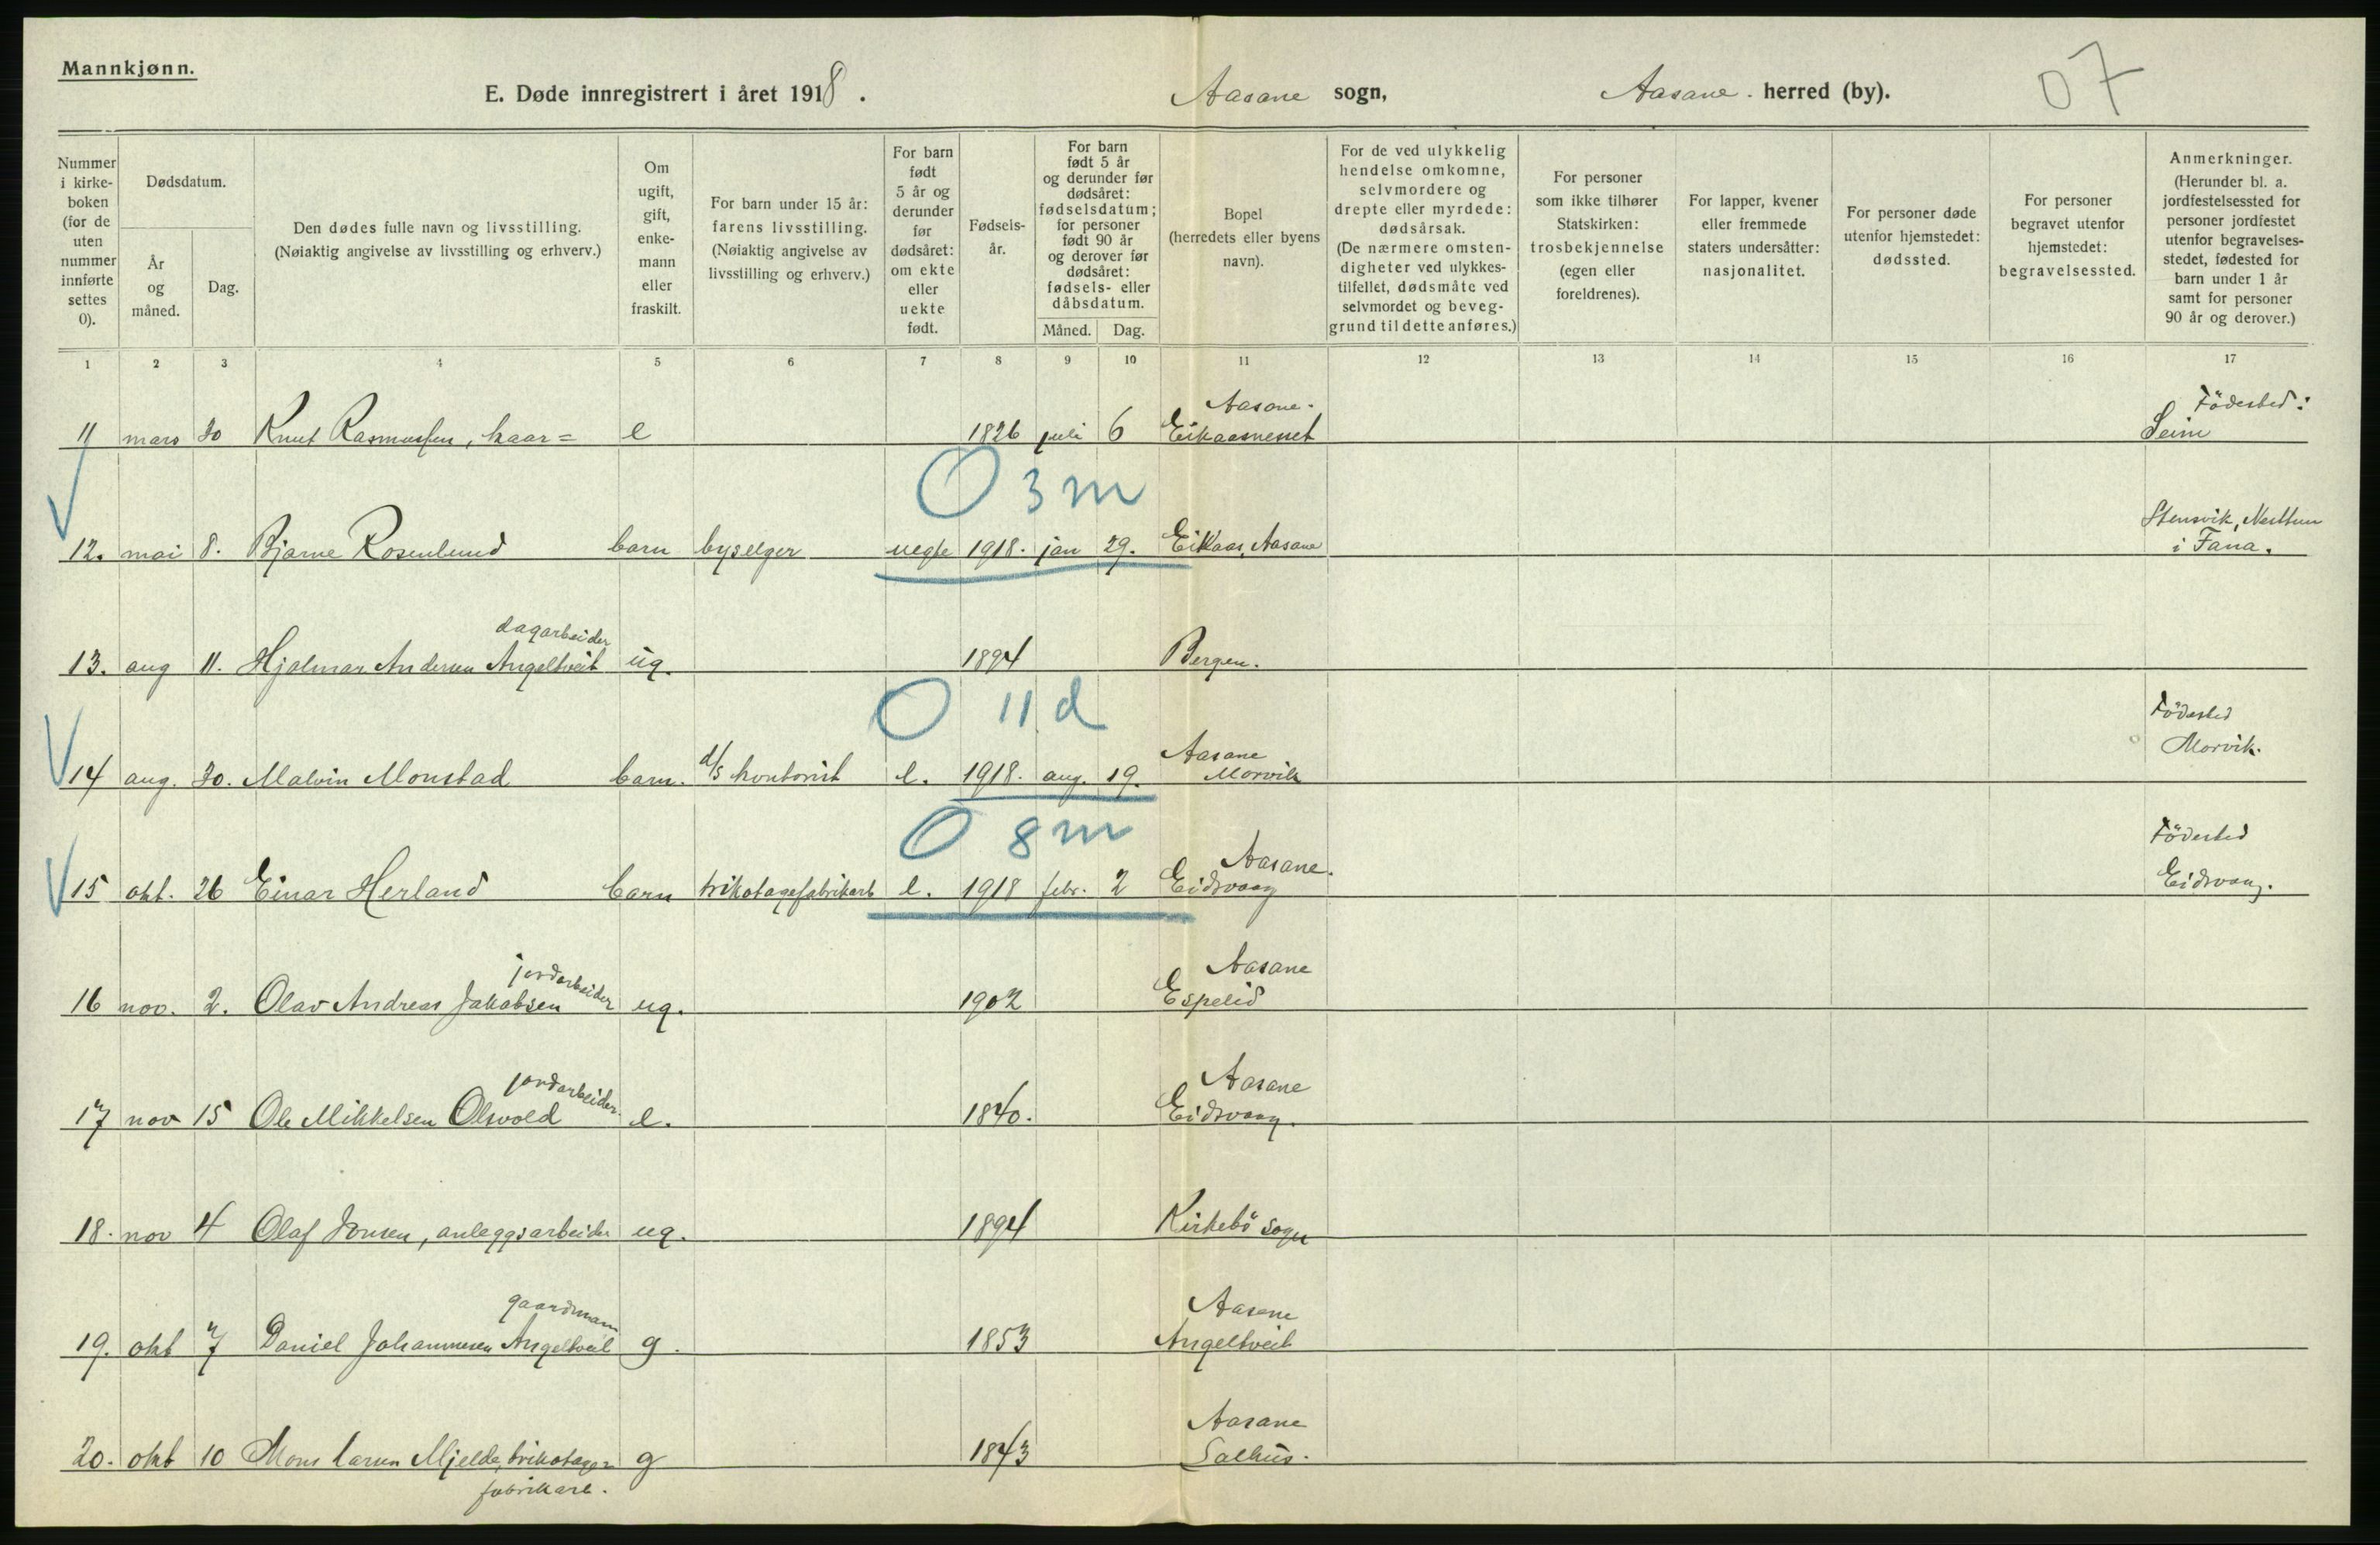 Mannkjønn.
E. Døde innregistrert i året 1918. Aasane sogn, Aasane herred (by). 07
Nummer i kirke- boken (for de uten nummer innførte settes 0).
Dødsdatum.
År og måned.
Dag.
Den dødes fulle navn og livsstilling. (Nøiaktig angivelse av livsstilling og erhverv.)
Om ugift, gift, enke- mann eller fraskilt.
For barn under 15 år: farens livsstilling. (Nøiaktig angivelse av livsstilling og erhverv.)
For barn født 5 år og derunder før dødsåret: om ekte eller uekte født.
Fødsels- år.
For barn født 5 år og derunder før dødsåret: fødselsdatum; for personer født 90 år og derover før dødsåret: fødsels- eller dåbsdatum.
Måned. Dag.
Bopel (herredets eller byens navn).
For de ved ulykkelig hendelse omkomne, selvmordere og drepte eller myrdede: dødsårsak. (De nærmere omsten- digheter ved ulykkes- tilfellet, dødsmåte ved selvmordet og beveg- grund til dette anføres.)
For personer som ikke tilhører Statskirken: trosbekjennelse (egen eller foreldrenes).
For lapper, kvener eller fremmede staters undersåtter: nasjonalitet.
For personer døde utenfor hjemstedet: dødssted.
For personer begravet utenfor hjemstedet: begravelsessted.
Anmerkninger. (Herunder bl. a. jordfestelsessted for personer jordfestet utenfor begravelses- stedet, fødested for barn under 1 år samt for personer 90 år og derover.)
1 2 3 4 5 6 7 8 9 10 11 12 13 14 15 16 17
Aasane. Födested:
11 mars 30 Knut Rasmussen, kaar= e 1826 juli 6 Eikaasnesset Seim
O 3 m
Stensvik, Nesttun
12. mai 8. Bjarne Rosenlund barn byselger uegte 1918. jan 29. Eikaas, Aasane i Fana.
dagarbeider
13. aug 11. Hjalmar Andersen Angeltveit ug. 1894 Bergen.
O 11 d
Födested
Aasane Morvik.
14 aug. 30. Malvin Monstad barn. d/s kontorist e. 1918. aug. 19. Morvik
O 8 m
Födested
Aasane.
15 okt. 26 Einar Herland barn trikotagefabrikarb e. 1918 febr. 2 Eidsvaag Eidsvaag.
jordarbeider Aasane
16 nov. 2. Olav Andreas Jakobsen ug. 1902 Espelid
jordarbeider. Aasane
17 nov 15 Ole Mikkelsen Olsvold e. 1840. Eidsvaag.
18. nov 4 Olaf Jonsen, anleggsarbeider ug. 1894 Kirkebö sogn
gaardmann Aasane
19. okt 7 Daniel Johannesen Angeltveit g. 1853 Angeltveit
Aasane
20. okt 10 Mons Larsen Mjelde, trikotage= g 1843 Salhus.
fabrikarb.